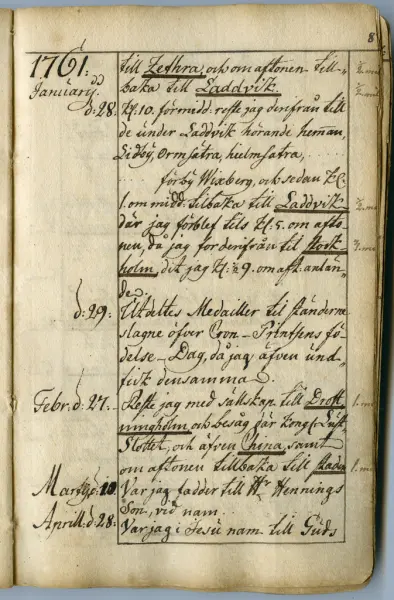 8
1761.
till Zethra, och om aftonen till-
baka till Laddvik.
January. d: 28. Kl. 10. förmidd. reste jag derifrån till
de under Laddvik hörande heman,
Lidby, Ormsätra, hielmsätra,
förby Wixberg, och sedan Kl.
1. om midd. tilbaka till Laddvik
där jag förblef tils Kl. 5. om afto-
nen, då jag for derifrån til Stock-
holm, dit jag Kl. ½ 9. om aft. anlän-
de.
d: 29. Utdeltes Medailler til ständerna
slagne öfver Cron-Printsens fö-
delse-Dag, då jag äfven und-
fick densamma.
Febr. d: 27. Reste jag med sällskap till Drott
ningholm och besåg där Kongl. Lust
Slottet, och äfven China, samt
om aftonen tillbaka till staden
Marty d: 10. Var jag fadder till Hr Hennings
Son, vid namn
Aprill: d: 28. Var jag i Jesu nam till Guds